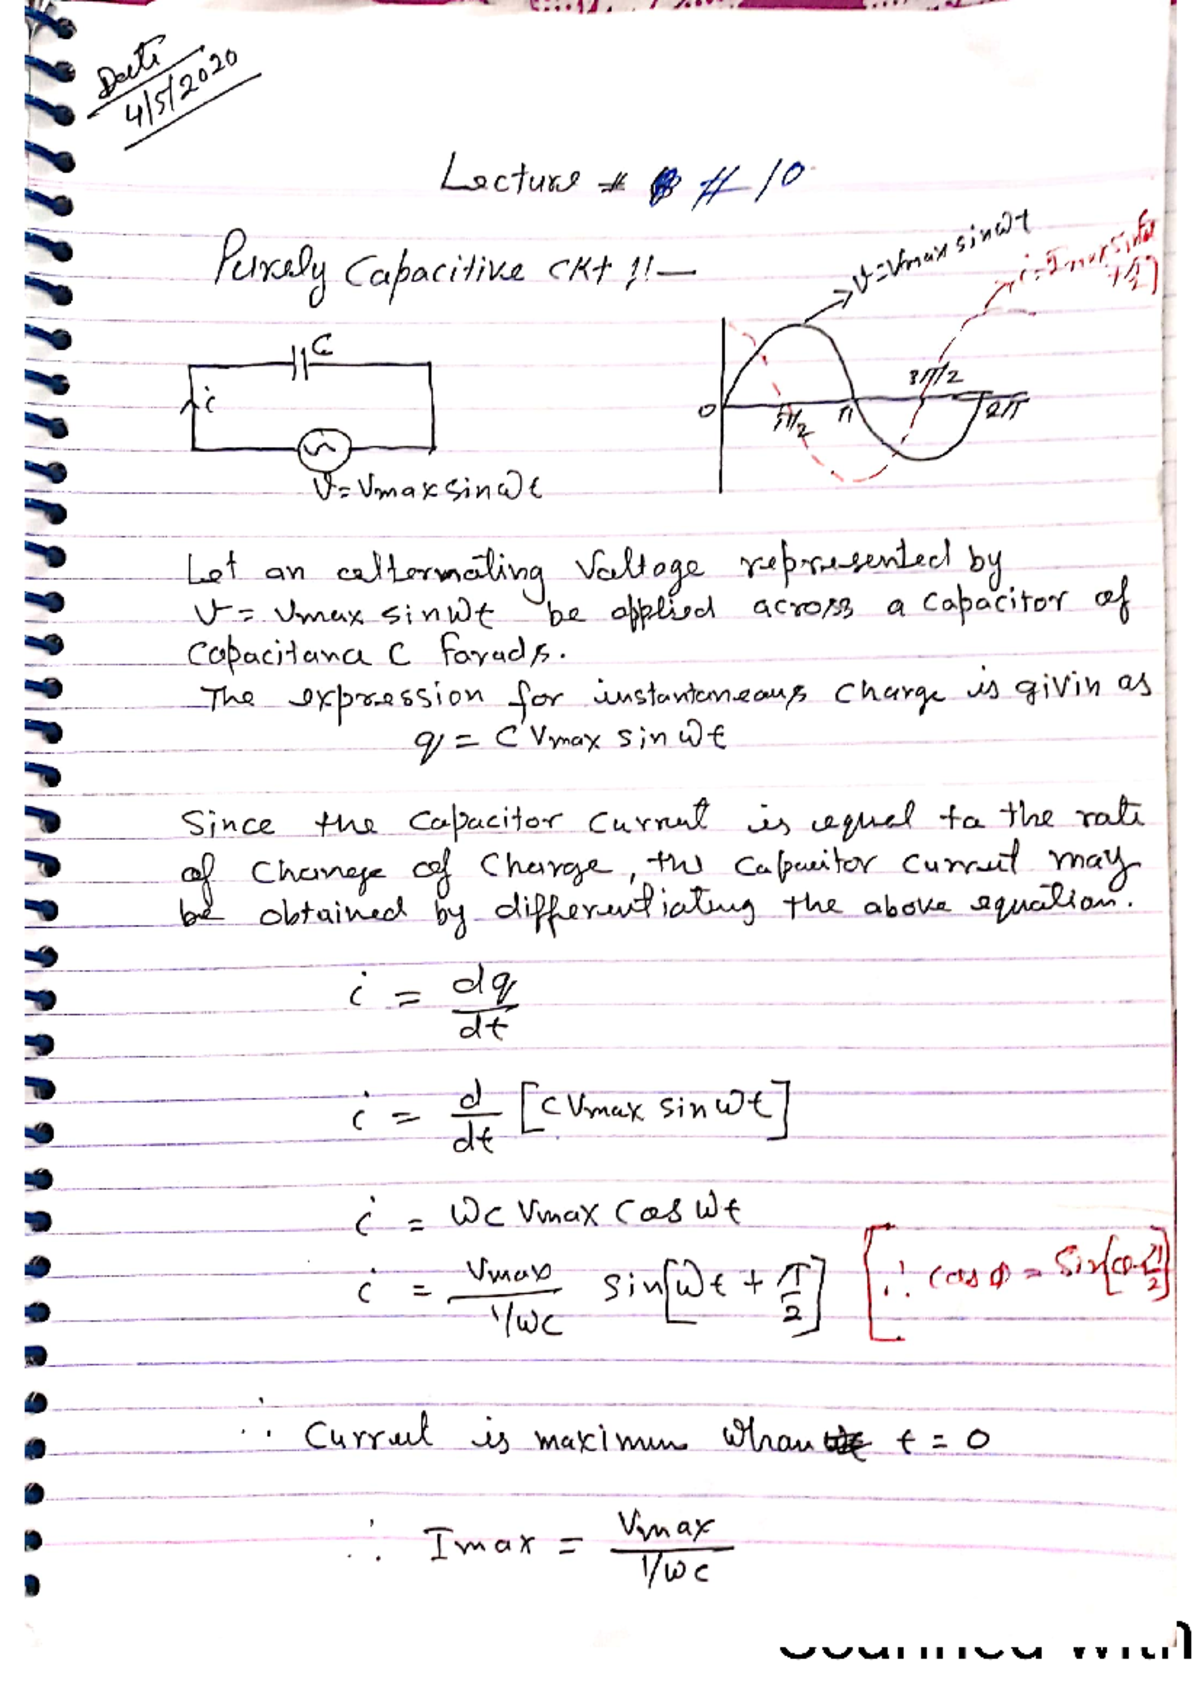 Date
4/5/2020
Lecture # # 10
Purely Capacitive CKt !!—
v=Vmax sinωt
i=Imax sin(ωt
+π/2)
C
i
0
π/2
π
3π/2
2π
v=Vmax sinωt
Let an alternating Voltage represented by
v= Vmax sinωt be applied across a capacitor of
Capacitance C farads.
The expression for instantaneous Charge is givin as
q = C Vmax sin ωt
Since the Capacitor Current is equal to the rate
of Change of Charge, the Capacitor Current may
be obtained by differentiating the above equation.
i = dq/dt
i = d/dt [C Vmax sin ωt]
i = ωC Vmax Cos ωt
i = Vmax / 1/ωC sin[ωt + π/2] [∴ Cos Φ = Sin
∴ Current is maximum when t = 0
∴ Imax = Vmax / 1/ωC